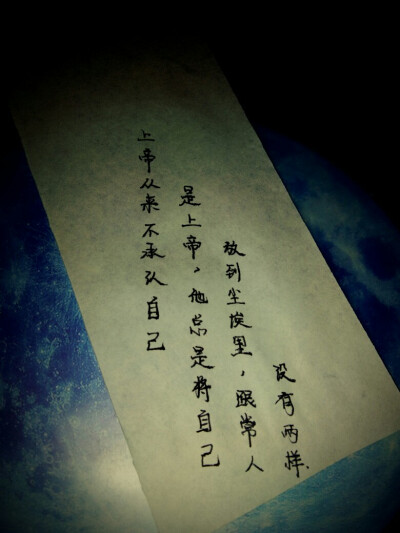 上帝从来不承认自己
是上帝，他总是将自己
放到尘埃里，跟常人
没有两样.